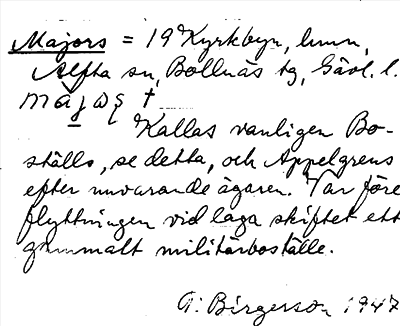 Majors = 19 Kyrkbyn, hmn,
Alfta sn, Bollnäs tg, Gävl. l.
majoş †
Kallas vanligen Bo-
ställe, se detta, och Appelgrens
efter nuvarande ägaren. Var före
flyttningen vid laga skiftet ett
gammalt militärboställe.
A. Birgerson 1947